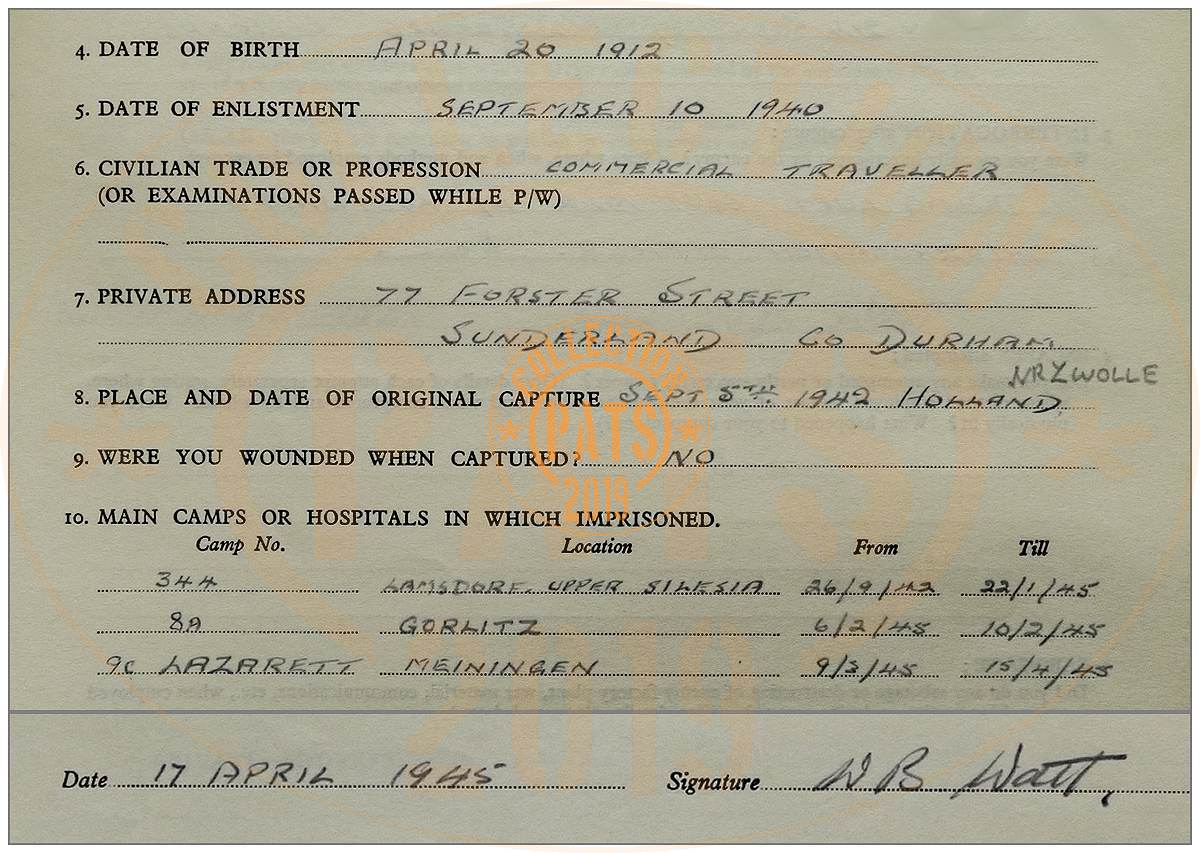 4. DATE OF BIRTH APRIL 20 1912
5. DATE OF ENLISTMENT SEPTEMBER 10 1940
6. CIVILIAN TRADE OR PROFESSION COMMERCIAL TRAVELLER
(OR EXAMINATIONS PASSED WHILE P/W)
7. PRIVATE ADDRESS 77 FORSTER STREET
SUNDERLAND CO DURHAM
NR ZWOLLE
8. PLACE AND DATE OF ORIGINAL CAPTURE SEPT 5TH. 1942 HOLLAND,
9. WERE YOU WOUNDED WHEN CAPTURED? NO
10. MAIN CAMPS OR HOSPITALS IN WHICH IMPRISONED.
Camp No. Location From Till
344 LAMSDORF. UPPER SILESIA 26/9/42 22/1/45
8A GORLITZ 6/2/45 10/2/45
9C LAZARETT MEININGEN 9/3/45 15/4/45
Date 17 APRIL 1945 Signature W B Watt,
COLLECTION
PATS
2019